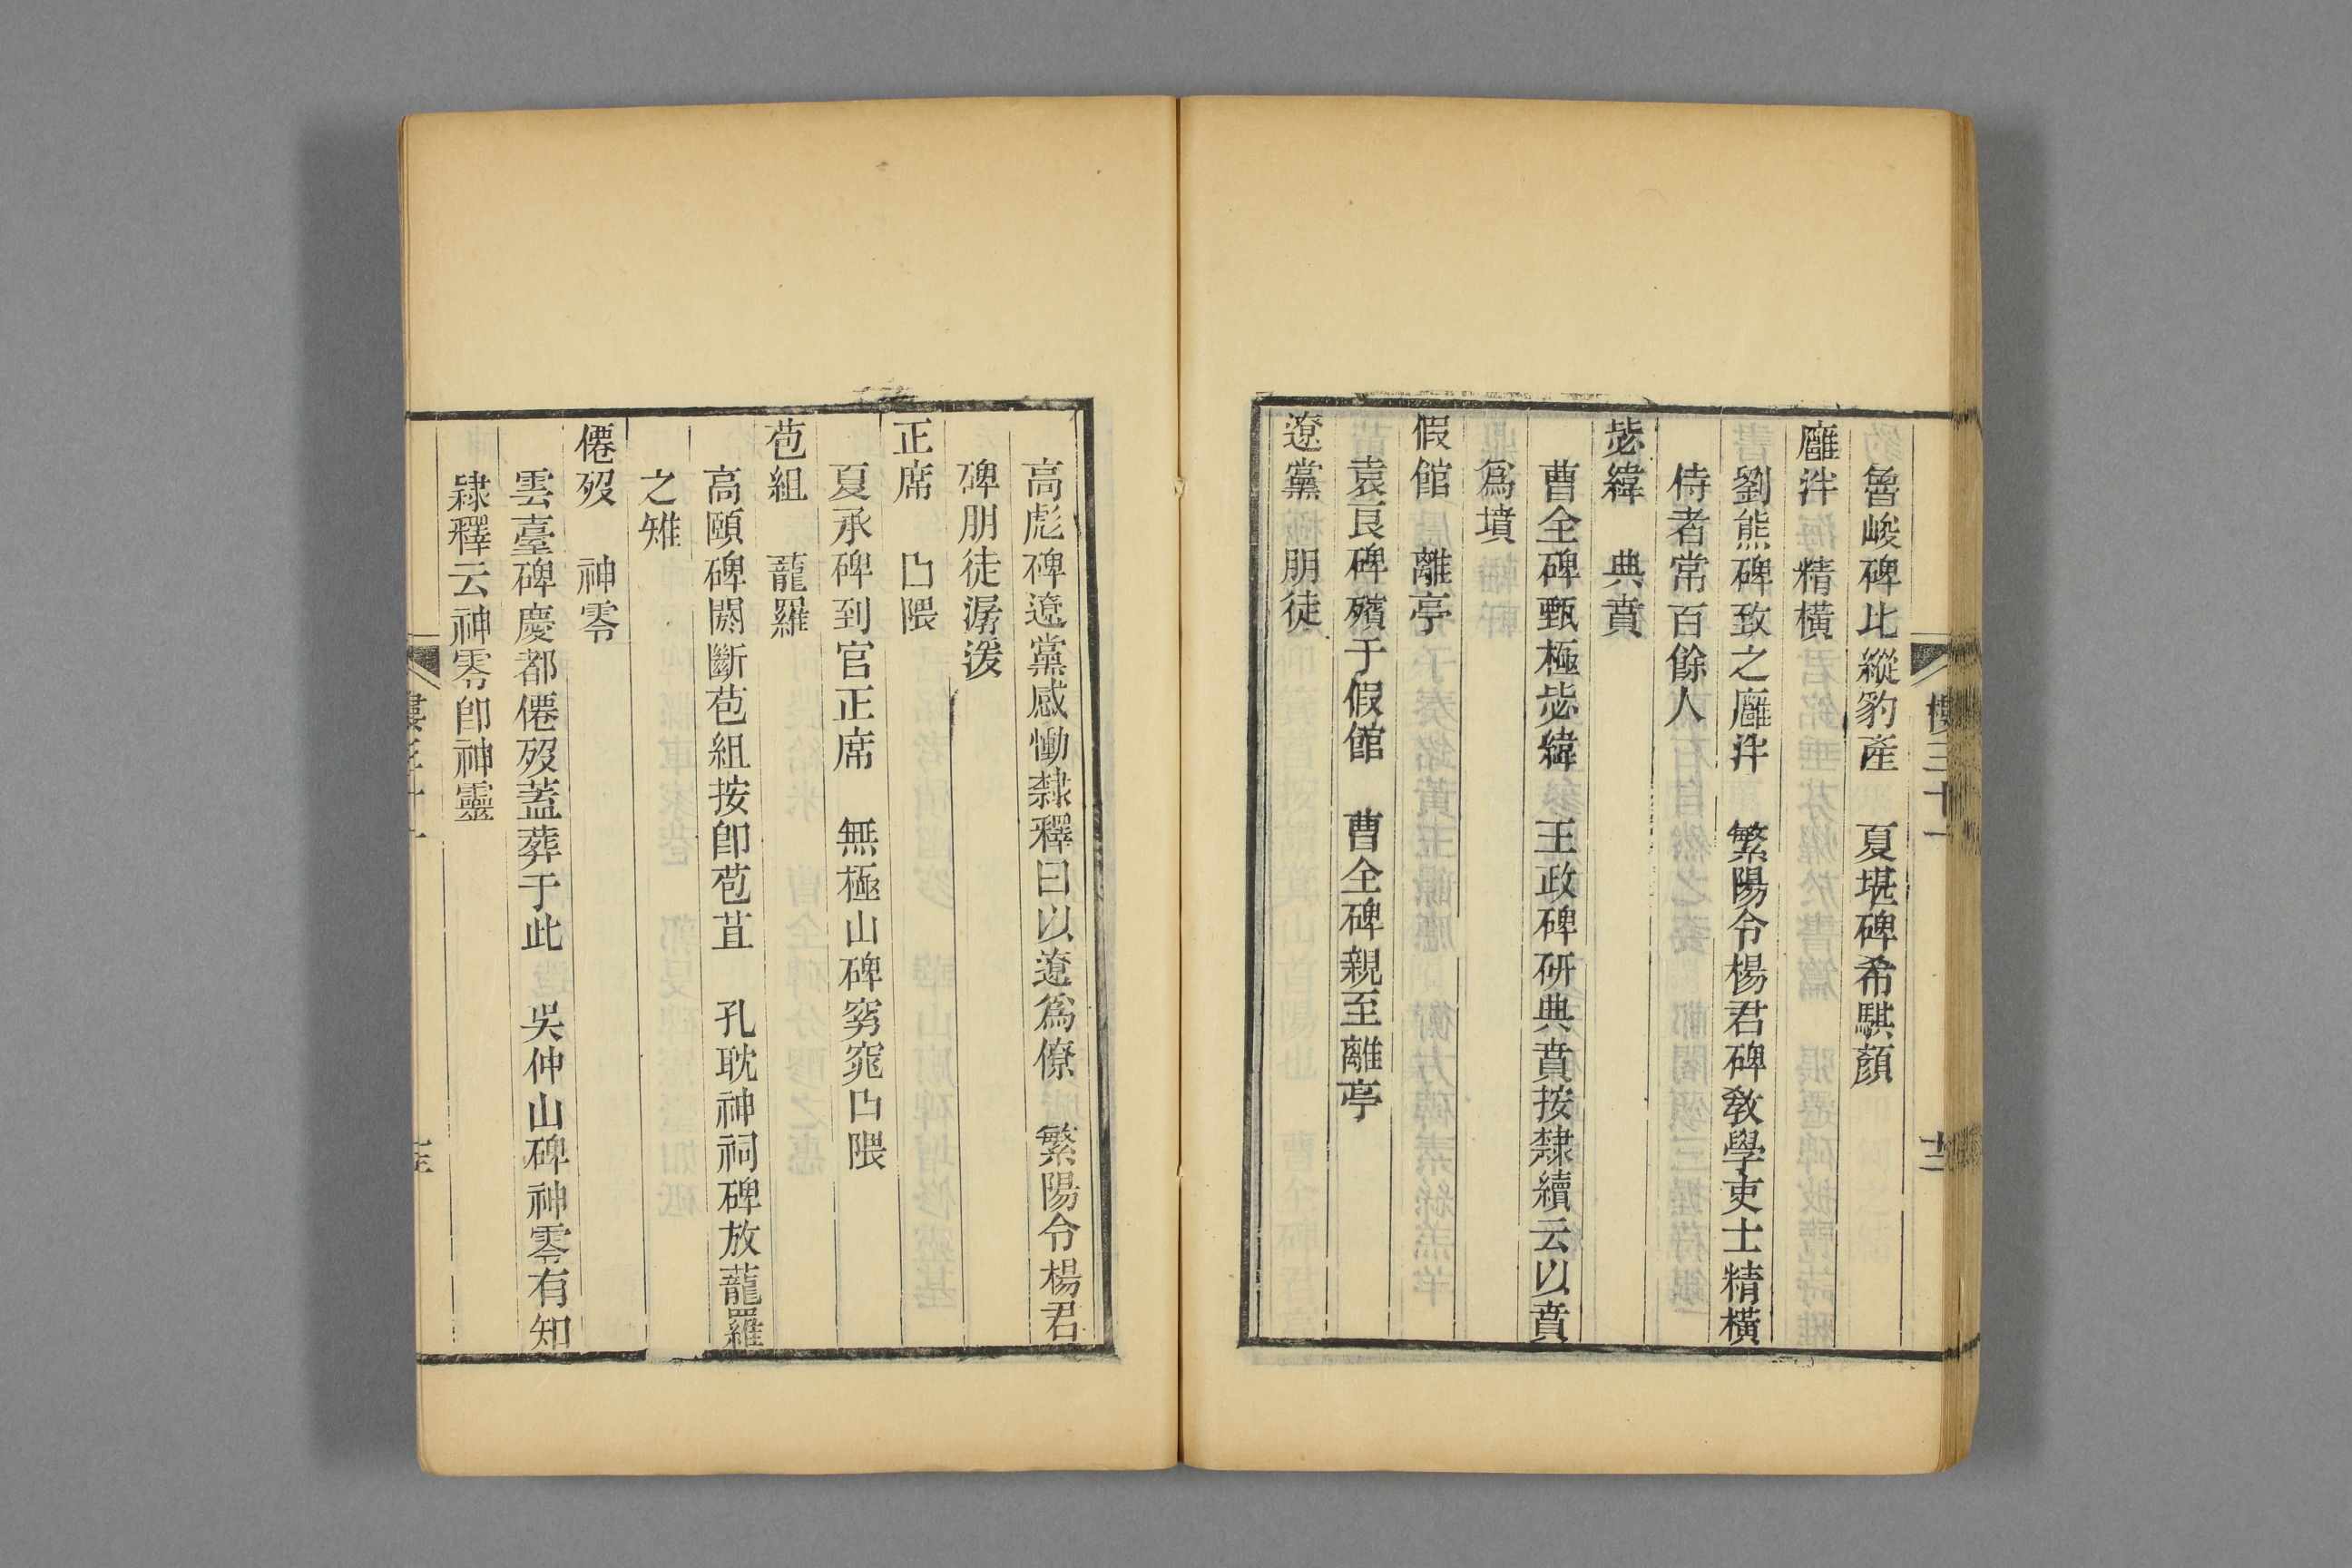 魯峻碑比縱豹產　夏堪碑希騏顏
廱泮　精橫
劉熊碑致之廱泮　繁陽令楊君碑敎學吏士精橫
侍者常百餘人
毖緯　典賁
曹全碑甄極毖緯　王政碑研典賁按隸續云以賁
爲墳
假館　離亭
袁良碑殯于假館　曹全碑親至離亭
遼黨　朋徒
高彪碑遼黨感慟隸釋曰以遼爲僚　繁陽令楊君
碑朋徒潺湲
正席　凸隈
夏承碑到官正席　無極山碑窈窕凸隈
苞組　蘢羅
高頤碑闕斷苞組按卽苞苴　孔耽神祠碑放蘢羅
之雉
僊歿　神零
雲臺碑慶都僊歿蓋葬于此　吳仲山碑神零有知
隸釋云神零卽神靈